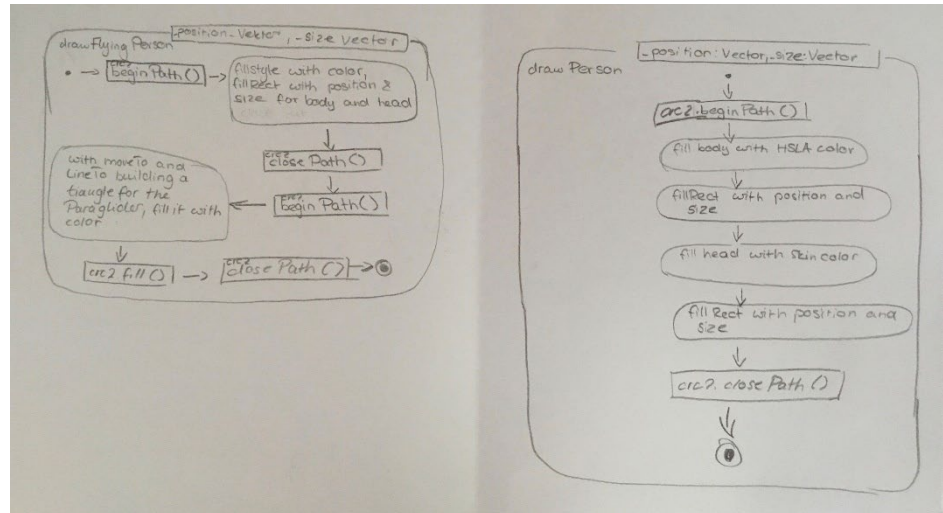 drawFlying Person
_position_Vektor, _size vector
crc2
beginPath()
fillstyle with color,
fillRect with position &
size for body and head
crc2
closePath()
crc2
beginPath()
with moveTo and
LineTo building a
tiaugle for the
Paraglider, fill it with
color
crc2.fill()
crc2
close Path ()
draw Person
_position: Vector, _size: Vector
crc2.beginPath()
fill body with HSLA color
fillRect with position and
size
fill head with Skin color
fill Rect with position and
size
crc2. close Path ()